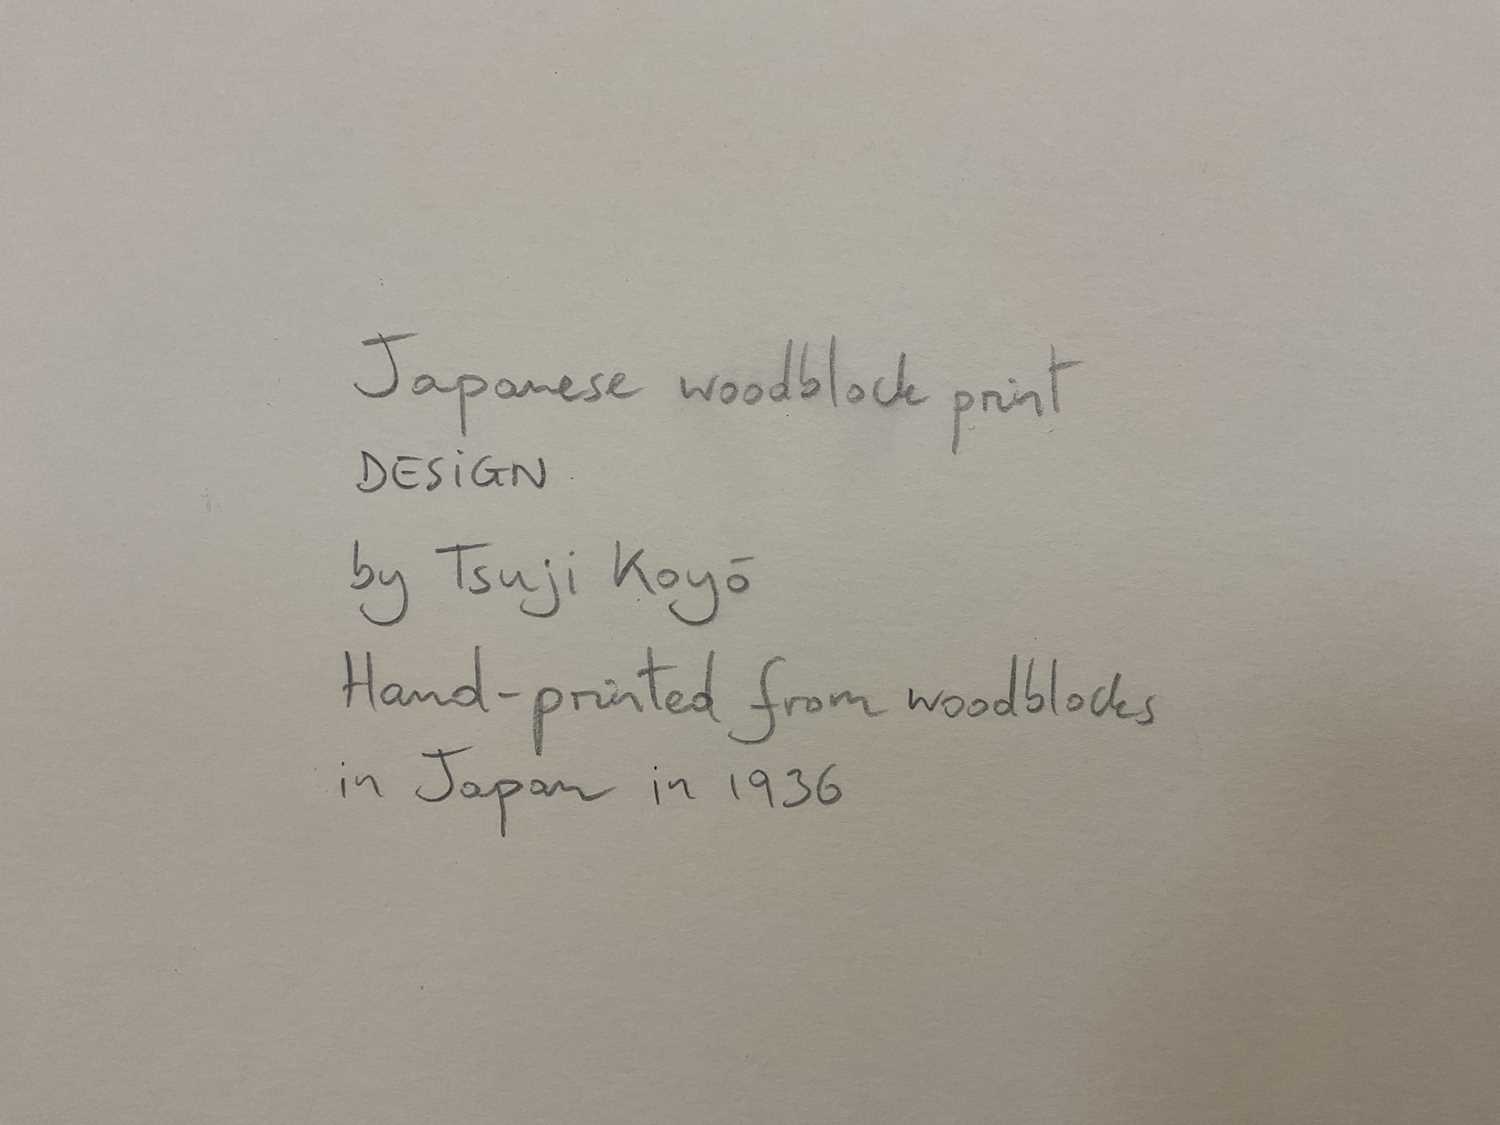 Japanese woodblock print
DESiGN
by Tsuji Koyō
Hand-printed from woodblocks
in Japan in 1936